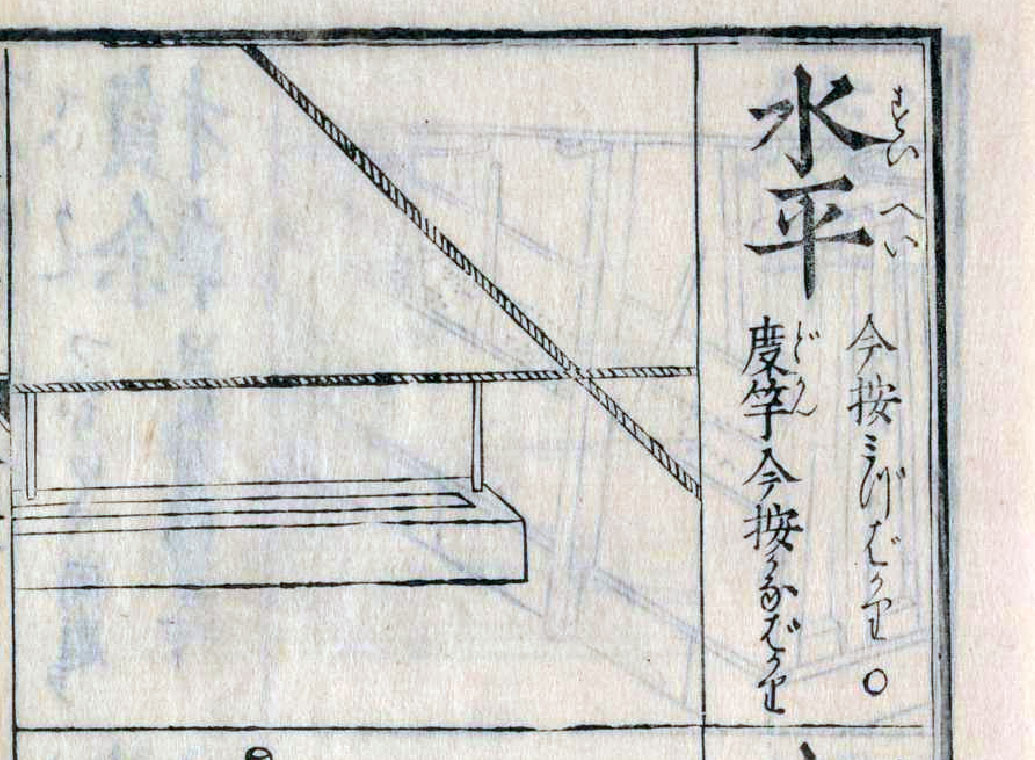 水平
すいへい
今按ミづばかり○
度竿今按かなばかり
どかん